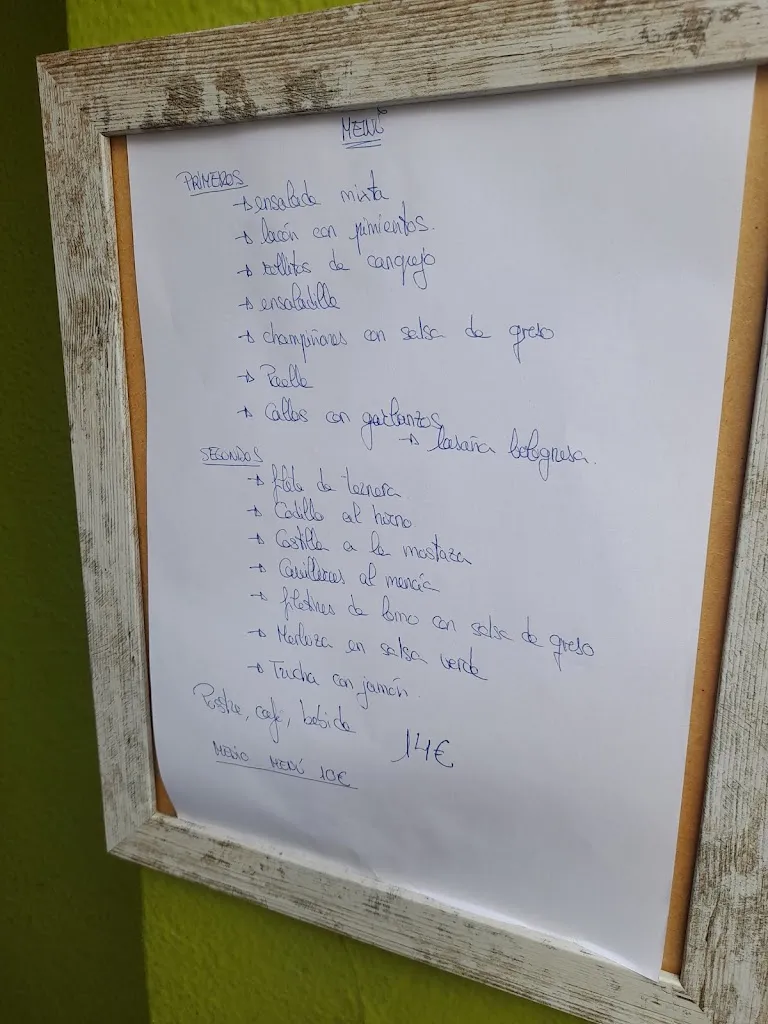 MENÚ
PRIMEROS
→ ensalada mixta
→ lacón con pimientos.
→ rollitos de cangrejo
→ ensaladilla
→ champiñones con salsa de queso
→ Paella
→ Callos con garbanzos
→ lasaña bolognesa.
SEGUNDOS
→ filete de ternera
→ Codillo al horno
→ Costilla a la mostaza
→ Carrilleras al mencía
→ filetines de lomo con salsa de queso
→ Merluza en salsa verde
→ Trucha con jamón.
Postre, café, bebida 14€
MEDIO MENÚ 10€